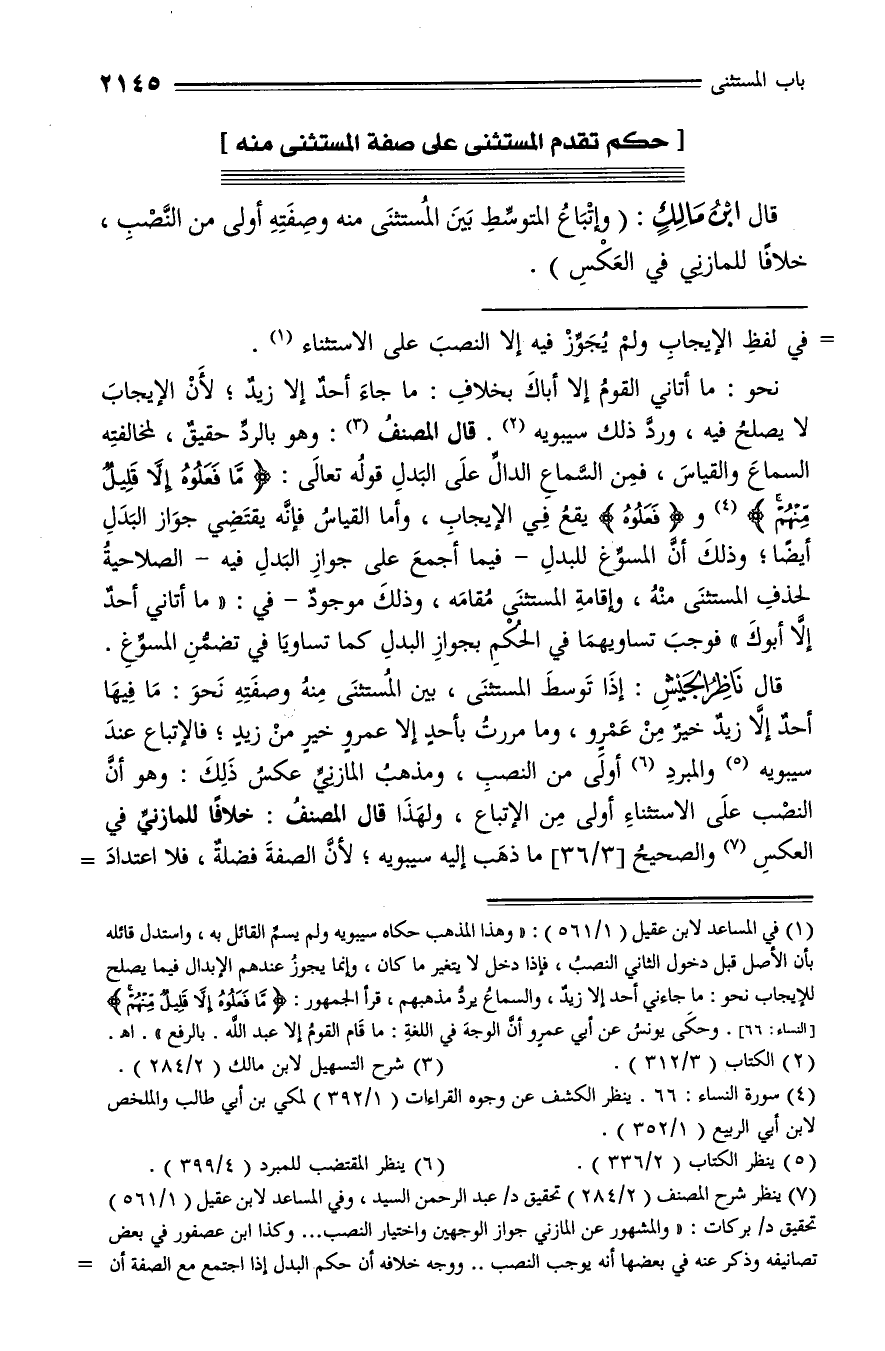 باب المستثنى ٢١٤٥
[ حكم تقدم المستثنى على صفة المستثنى منه ]
قال ابْنُ مَالِكٍ : ( وإتْبَاعُ المتوسِّطِ بَينَ المُستثنَى منه وصِفَتِهِ أولى من النَّصْبِ ،
خلافًا للمازنِي في العَكْسِ ) .
= في لفظِ الإيجابِ ولمْ يُجَوِّزْ فيه إلا النصبَ على الاستثناء (١) .
نحو : ما أتاني القومُ إلا أباكَ بخلافِ : ما جاءَ أحدٌ إلا زيدٌ ؛ لأنَّ الإيجابَ
لا يصلحُ فيه ، وردَّ ذلك سيبويه (٢) . قال المصنفُ (٣) : وهو بالردِّ حقيقٌ ، لمخالفتِه
السماعَ والقياسَ ، فمِن السَّماعِ الدالِّ علَى البَدلِ قولُه تعالَى : ﴿ مَّا فَعَلُوهُ إِلَّا قَلِيلٌ
مِّنْهُمْ ﴾ (٤) و ﴿ فَعَلُوهُ ﴾ يقعُ فِي الإيجابِ ، وأما القياسُ فإنَّه يقتَضِي جوَازَ البَدَلِ
أيضًا ؛ وذلكَ أنَّ المسوِّغ للبدلِ - فيما أجمعَ على جوازِ البَدلِ فيه - الصلاحيةُ
لحذفِ المستثنَى منْهُ ، وإقامةِ المستثنَى مُقامَه ، وذلكَ موجودٌ - في : « ما أتاني أحدٌ
إلَّا أبوكَ » فوجبَ تساويهمَا في الحُكْمِ بجوازِ البدلِ كما تساويَا في تضمُّنِ المسوِّغِ .
قال نَاظِرُ الجَيْشِ : إذَا تَوسطَ المستثنَى ، بين المُستثنَى مِنهُ وصفَتِهِ نَحوَ : مَا فِيهَا
أحدٌ إلَّا زيدٌ خيرٌ مِنْ عَمْرٍو ، وما مررتُ بأحدٍ إلا عمرٍو خيرٍ منْ زيدٍ ؛ فالإتباع عندَ
سيبويه (٥) والمبردِ (٦) أولَى من النصبِ ، ومذهبُ المازنِيِّ عكسُ ذَلِكَ : وهو أنَّ
النصْب علَى الاستثناءِ أولى مِن الإتباع ، ولهَذَا قال المصنفُ : خلافًا للمازنيِّ في
العكسِ (٧) والصحيحُ [٣/٣٦] ما ذهَب إليه سيبويه ؛ لأنَّ الصفةَ فضلةٌ ، فلا اعتدادَ =
(١) في المساعد لابن عقيل ( ٥٦١/١ ) : « وهذا المذهب حكاه سيبويه ولم يسمِّ القائل به ، واستدل قائله
بأن الأصل قبل دخول الثاني النصبُ ، فإذا دخل لا يتغير ما كان ، وإنما يجوزُ عندهم الإبدال فيما يصلح
للإيجاب نحو : ما جاءني أحد إلا زيدٌ ، والسماعُ يردُّ مذهبهم ، قرأ الجمهور : ﴿ مَّا فَعَلُوهُ إِلَّا قَلِيلٌ مِّنْهُمْ ﴾
[النساء: ٦٦] . وحكَى يونسُ عن أبي عمرو أنَّ الوجهَ في اللغةِ : ما قَام القومُ إلا عبد اللَّه . بالرفع » . اهـ .
(٢) الكتاب ( ٣١٢/٣ ) . (٣) شرح التسهيل لابن مالك ( ٢٨٤/٢ ) .
(٤) سورة النساء : ٦٦ . ينظر الكشف عن وجوه القراءات ( ٣٩٢/١ ) لمكي بن أبي طالب والملخص
لابن أبي الربيع ( ٣٥٢/١ ) .
(٥) ينظر الكتاب ( ٣٣٦/٢ ) . (٦) ينظر المقتضب للمبرد ( ٣٩٩/٤ ) .
(٧) ينظر شرح المصنف ( ٢٨٤/٢ ) تحقيق د/ عبد الرحمن السيد ، وفي المساعد لابن عقيل ( ٥٦١/١ )
تحقيق د/ بركات : « والمشهور عن المازني جواز الوجهين واختيار النصب... وكذا ابن عصفور في بعض
تصانيفه وذكر عنه في بعضها أنه يوجب النصب .. ووجه خلافه أن حكم البدل إذا اجتمع مع الصفة أن =